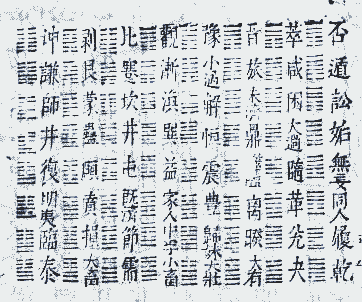 否遁訟姤無妄同人履乾
萃咸困大過隨革兌夬
晉旅未濟鼎噬嗑離睽大有
豫小過解恒震豐歸妹大壯
觀漸渙巽益家人中孚小畜
比蹇坎井屯既濟節需
剥艮蒙蠱頤賁損大畜
坤謙師升復明夷臨泰